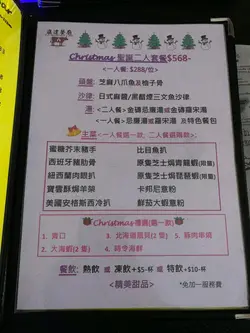 Christmas 聖誕二人套餐$568-
<一人餐: $288/位>
頭盤: 芝麻八爪魚及柚子骨
沙律: 日式蘿蔔/黑醋煙三文魚沙律
湯: <二人餐>金磚忌廉湯或金磚羅宋湯
<一人餐>忌廉湯或羅宋湯 及特色餐包
主菜 <一人餐選一款, 二人餐選兩款>:
蜜糖芥末豬手
西班牙豬肋骨
紐西蘭肉眼扒
寶雲酥焗羊架
美國安格斯西冷扒
比目魚扒
原隻芝士焗青龍蝦(限量)
原隻芝士焗琵琶蝦(限量)
卡邦尼意粉
鮮茄大蝦意粉
Christmas禮選(選一款)
1. 青口
2. 大海蝦(2隻)
3. 北海道扇貝(2隻)
4. 時令海鮮
5. 豬肉串燒
餐飲: 熱飲 或 凍飲+$5-杯 或 特飲+$10-杯
<精美甜品>
*免加一服務費